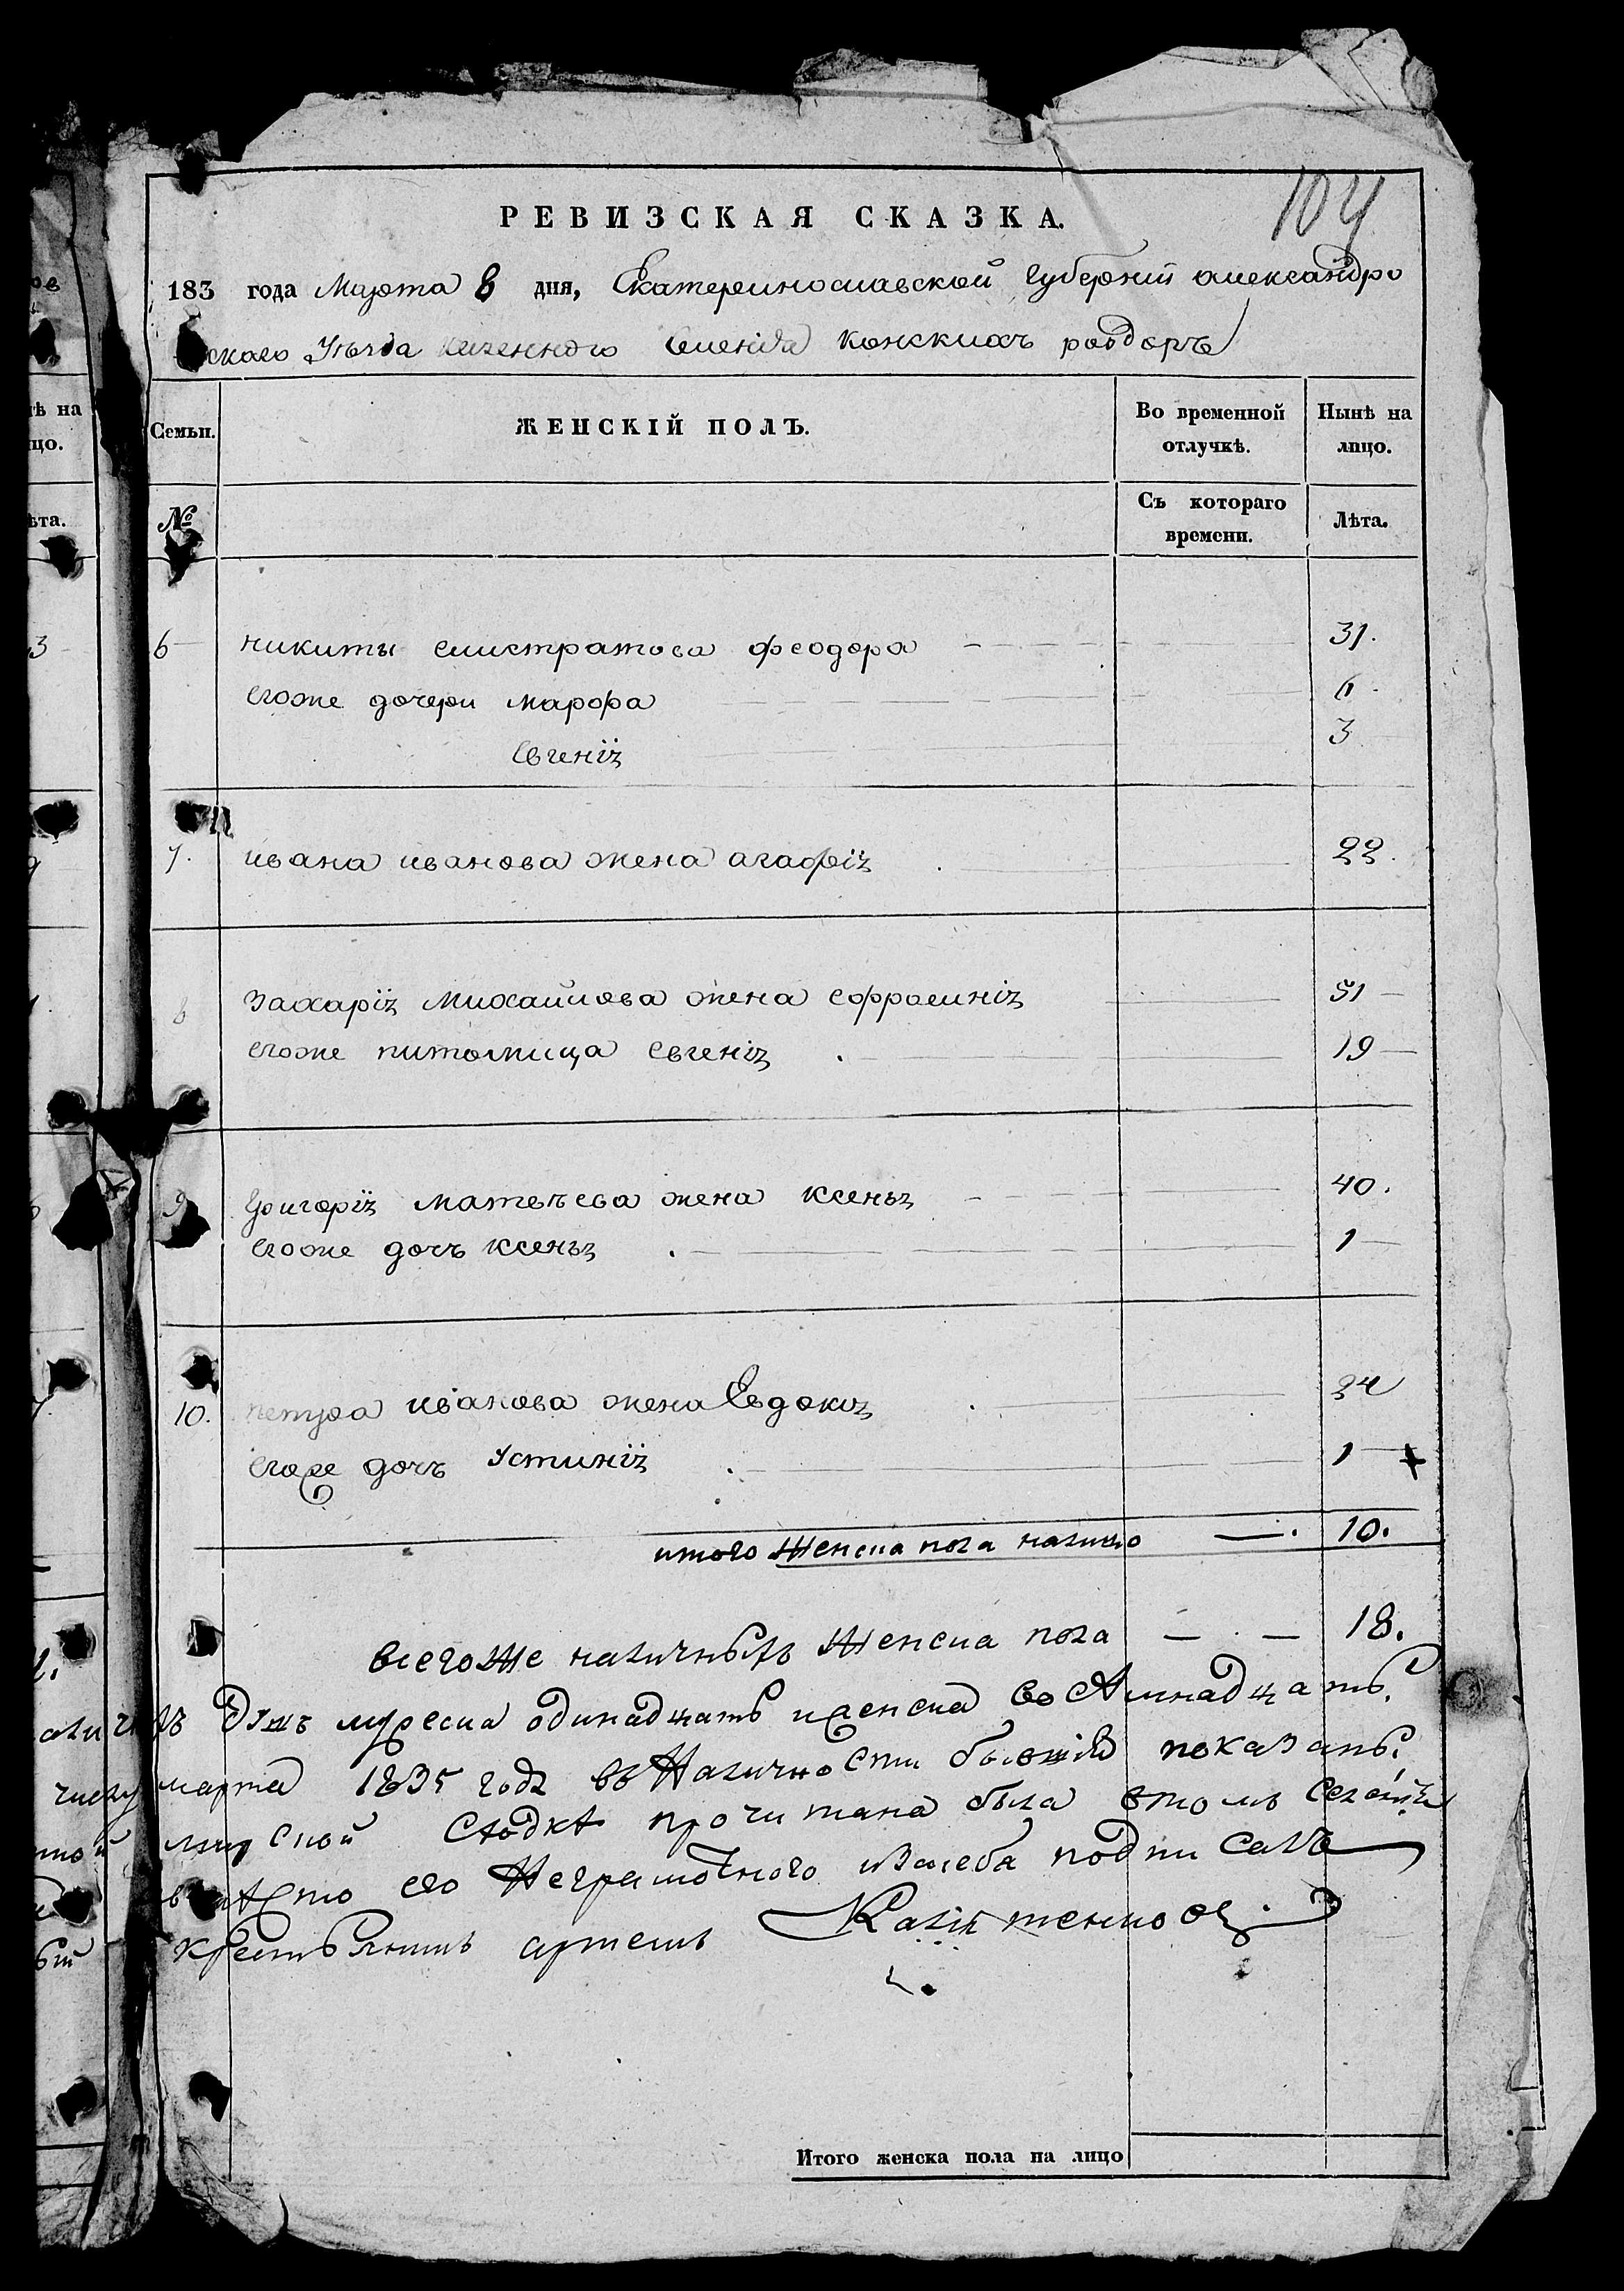 104
РЕВИЗСКАЯ СКАЗКА.
183 года Марта 8 дня, Екатеринославской Губерніи александро
скаго Уѣзда казенного Селенія конскихъ роздоръ
Семьи.
ЖЕНСКІЙ ПОЛЪ.
Во временной отлучкѣ.
Нынѣ на лицо.
№
Съ котораго времени.
Лѣта.
6 никиты елистратова феодора 31.
егоже дочери марфа 6
Евгенія 3
7. ивана иванова жена агафія 22.
8 Захарія Михайлова жена ефросинія 51
егоже питомица евгенія 19
9 Григорія матвѣева жена ксенья 40.
егоже дочь ксенья 1
10. петра иванова жена Евдокия 24
егоже дочь Устинія 1
итого женска пола налицо 10.
всегоже наличныхъ женска пола 18.
душъ мужеска одинадцать женска восAмнадцать
марта 1835 года въ Наличности бывшія показаны.
мирской сходкѣ прочитана была втомъ
его Неграмотного подписалъ
крестьянинъ артемъ
Итого женска пола на лицо